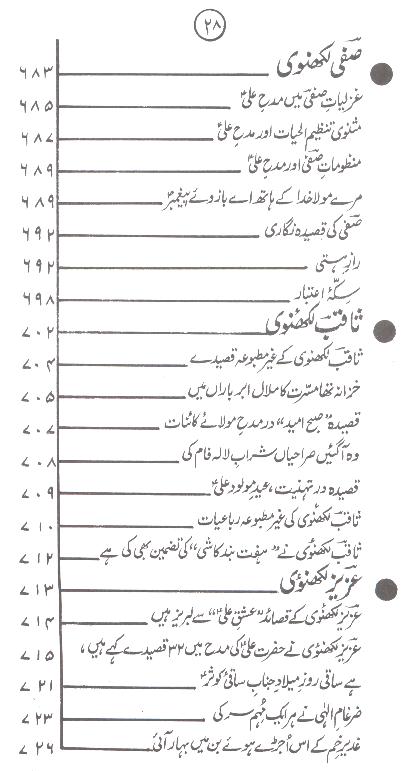 ۲۸
صفی لکھنوی ۶۸۳
غزلیاتِ صفی میں مدحِ علیؑ ۶۸۵
مثنوی تنظیم الحیات اور مدحِ علیؑ ۶۸۷
منظوماتِ صفی اور مدحِ علیؑ ۶۸۹
مرے مولا خدا کے ہاتھ اے بازوئے پیغمبرؐ ۶۸۹
صفی کی قصیدہ نگاری ۶۹۲
رازِ ہستی ۶۹۲
سکۂ اعتبار ۶۹۸
ثاقب لکھنوی ۷۰۲
ثاقب لکھنوی کے غیر مطبوعہ قصیدے ۷۰۴
خزانہ تھا مسرّت کا ملال ابرِ باراں میں ۷۰۵
قصیدہ ”صبح امید“ در مدحِ مولائے کائنات ۷۰۷
وہ آگئیں صراحیاں شرابِ لالہ فام کی ۷۰۸
قصیدہ در تہنیت، عیدِ مولودِ علیؑ ۷۰۹
ثاقب لکھنوی کی غیر مطبوعہ رباعیات ۷۱۰
ثاقب لکھنوی نے ”ہفت بند کاشی“ کی تضمین بھی کی ہے ۷۱۲
عزیز لکھنوی ۷۱۳
عزیز لکھنوی کے قصائد ”عشقِ علیؑ“ سے لبریز ہیں ۷۱۴
عزیز لکھنوی نے حضرت علیؑ کی مدح میں ۳۲ قصیدے کہے ہیں، ۷۱۵
ہے ساقی روزِ میلادِ جنابِ ساقیٔ کوثرؑ ۷۲۱
ضرغامِ الٰہی نے ہر ایک مُہم سر کی ۷۲۳
غدیرِ خم کے اس اُجڑے ہوئے بن میں بہار آئی ۷۲۶